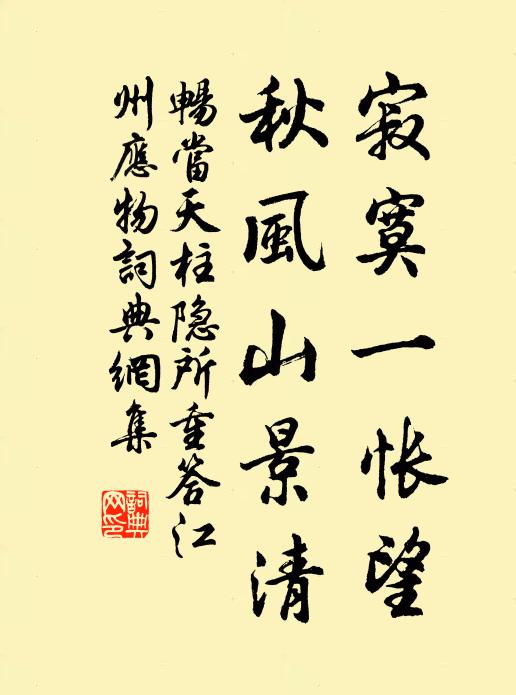 寂寞一帐望
秋風山景清
暢當天柱隐所重答江
州應物詞典網集
詞典
网印